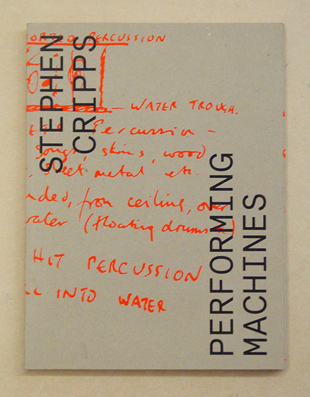 STEPHEN
CRIPPS
PERFORMING
MACHINES
PERCUSSION
WATER TROUGH.
Percussion —
Songs, skins, wood
sheet metal etc.
from ceiling, over
water (floating drums)
HIT PERCUSSION
INTO WATER